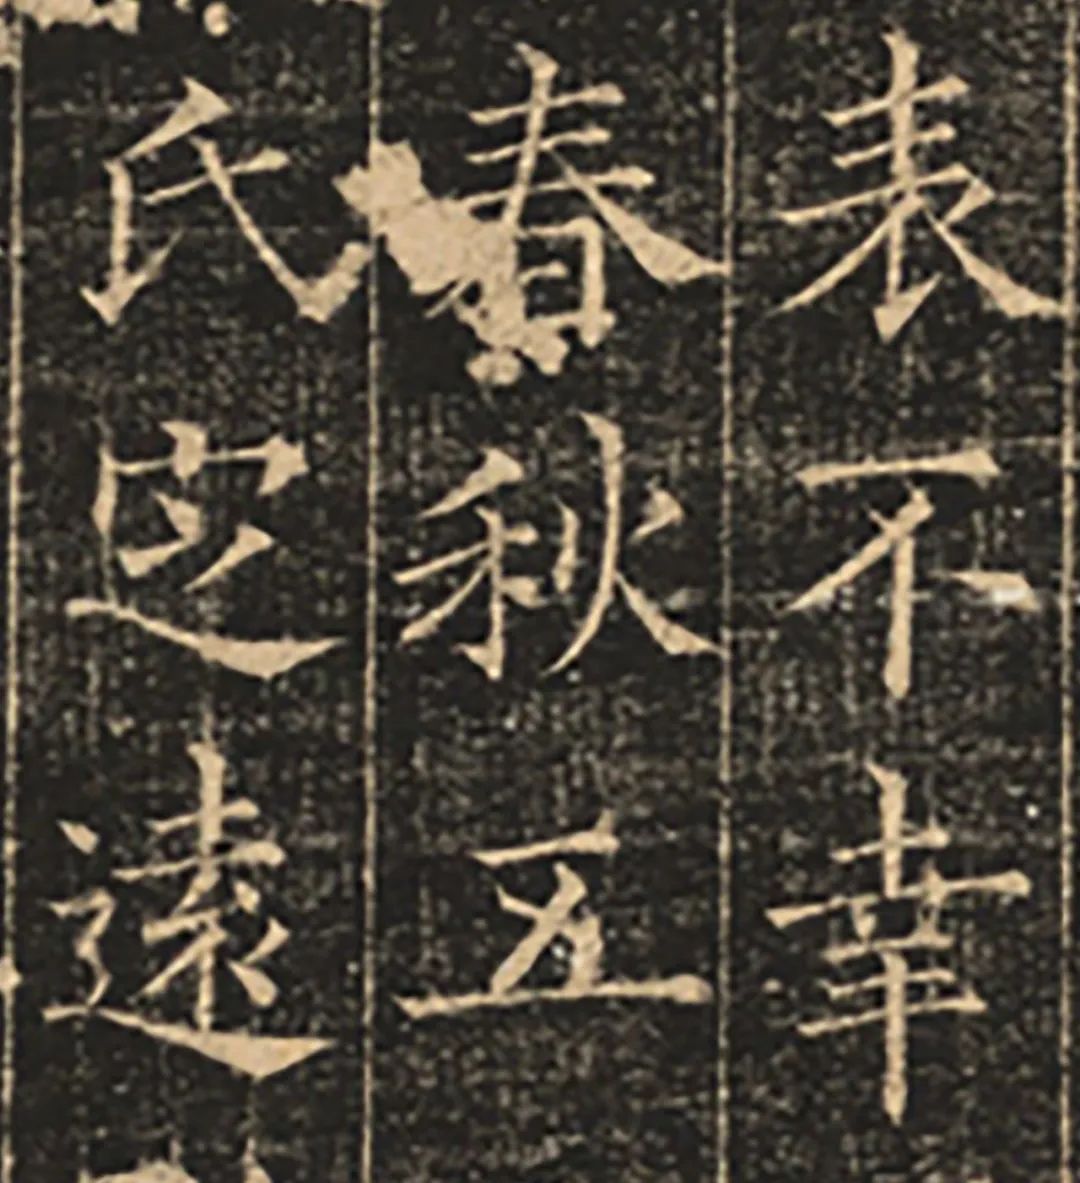 表不幸
春秋五
氏遠